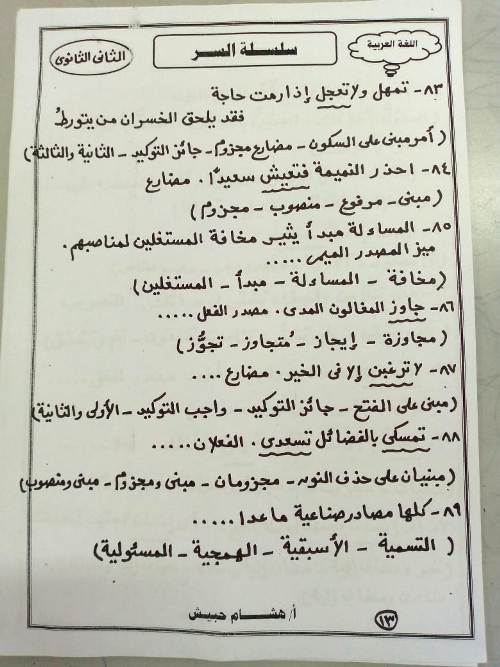 اللغة العربية
سلسلة السر
الثانى الثانوى
٨٣- تمهل ولا تعجل إذا رمت حاجة
فقد يلحق الخسران من يتورطُ
(أمر مبنى على السكون - مضارع مجزوم - جائز التوكيد - الثانية والثالثة)
٨٤- احذر النميمة فتعيش سعيدًا. مضارع
(مبنى - مرفوع - منصوب - مجزوم)
٨٥- المساءلة مبدأ يثير مخافة المستغلين لمناصبهم.
ميز المصدر الميمى .....
(مخافة - المساءلة - مبدأ - المستغلين)
٨٦- جاوز المغالون المدى. مصدر الفعل .....
(مجاوزة - إيجاز - مُتجاوز - تجوُّز)
٨٧- لا ترغبن إلا فى الخير. مضارع ....
(مبنى على الفتح - جائز التوكيد - واجب التوكيد - الأولى والثانية)
٨٨- تمسكى بالفضائل تسعدى. الفعلان .....
(مبنيان على حذف النون - مجزومان - مبنى ومجزوم - مبنى ومنصوب)
٨٩- كلها مصادر صناعية ما عدا .....
(التسمية - الأسبقية - الهمجية - المسئولية)
أ/ هشام حبيش
١٣